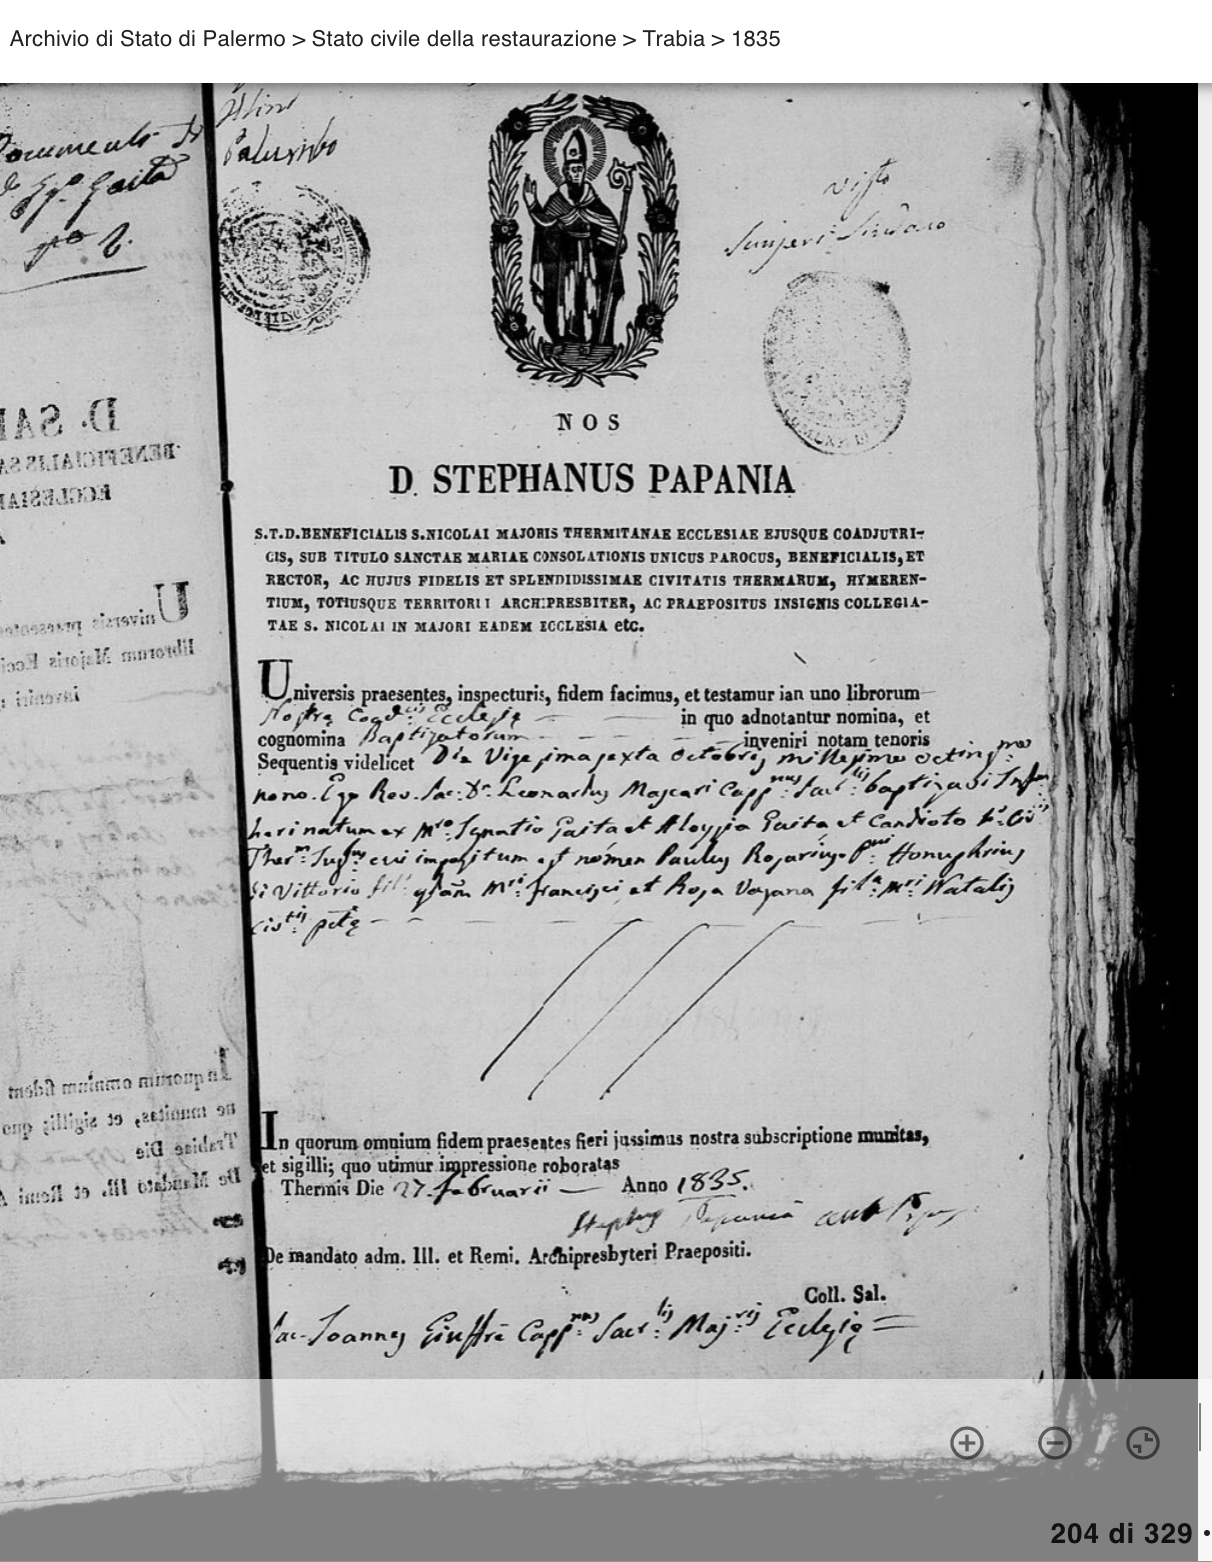 Archivio di Stato di Palermo > Stato civile della restaurazione > Trabia > 1835
Documento
Gaita
visto
Sindaco
NOS
D. STEPHANUS PAPANIA
S.T.D.BENEFICIALIS S.NICOLAI MAJORIS THERMITANAE ECCLESIAE EJUSQUE COADJUTRI-
CIS, SUB TITULO SANCTAE MARIAE CONSOLATIONIS UNICUS PAROCUS, BENEFICIALIS, ET
RECTOR, AC HUJUS FIDELIS ET SPLENDIDISSIMAE CIVITATIS THERMARUM, HYMEREN-
TIUM, TOTIUSQUE TERRITORII ARCHIPRESBITER, AC PRAEPOSITUS INSIGNIS COLLEGIA-
TAE S. NICOLAI IN MAJORI EADEM ECCLESIA etc.
Universis praesentes, inspecturis, fidem facimus, et testamur ian uno librorum
Nostrę Coad:cis Ecclesię in quo adnotantur nomina, et
cognomina Baptizatorum inveniri notam tenoris
Sequentis videlicet Die Vigesimasexta Octobris millesimo octing:mo
nono. Ego Rev. Sac: Dr. Leonardus Mascari Capp:nus Sacr:lis baptizavi Inf:
heri natum ex Mro Ignatio Gaita et Aloysia Gaita et Candioto
cui impositum est nómen Paulus Rosarius. P:ni Honuphrius
di Vittorio fil: qdam Mri: Francisci et Rosa Vazana fil:a Mri Natalis
III
In quorum omnium fidem praesentes fieri jussimus nostra subscriptione munitas,
et sigilli; quo utimur impressione roboratas
Thermis Die 27. Februarii Anno 1835.
Stephus Papania
De mandato adm. Ill. et Remi. Archipresbyteri Praepositi.
Coll. Sal.
Sac. Joannes Giuffrè Capp:nus Sacr:lis Maj:ris Ecclesię
204 di 329 •